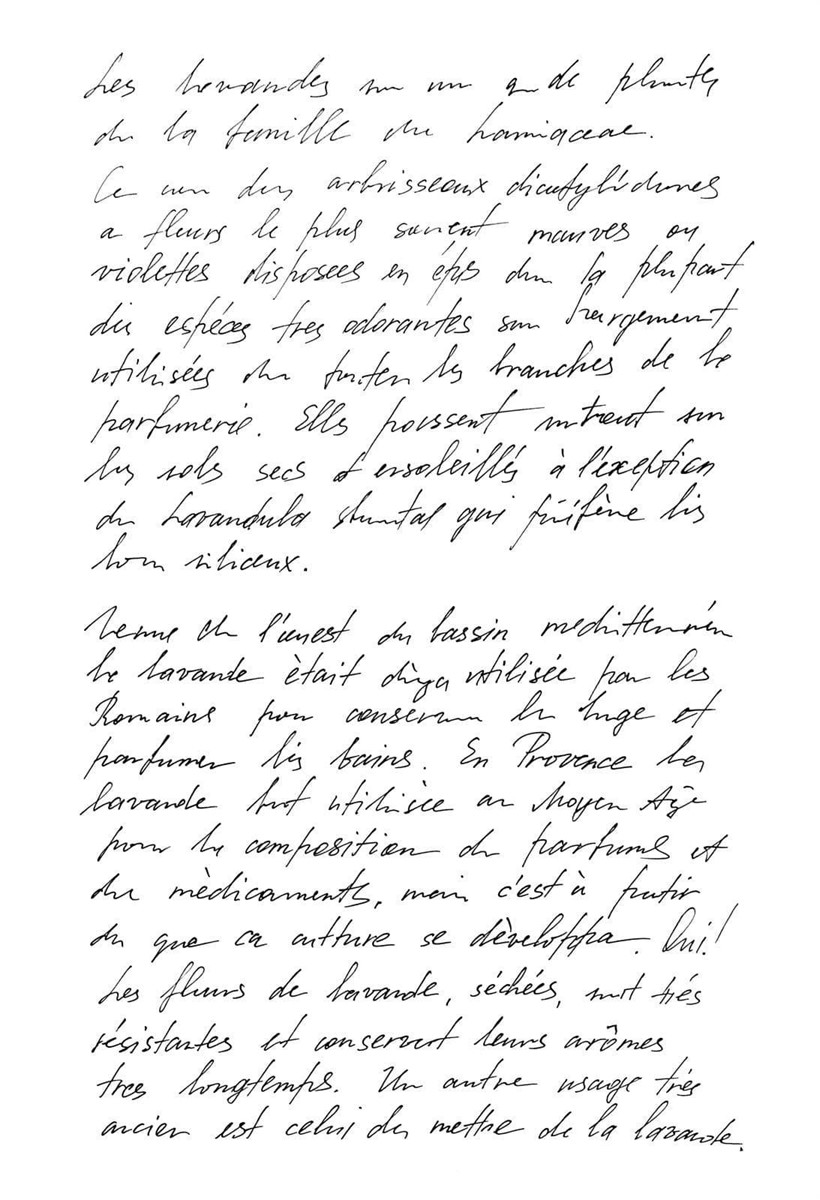 Les lavandes de plantes
de la famille du Lamiaceae.
Ce des arbrisseaux dicotylédones
a fleurs le plus souvent mauves ou
violettes disposées en épis la plupart
des espéces tres odorantes sont largement
utilisées les branches de la
parfumerie. Elles poussent surtout sur
les sols secs et ensoleillés à l'exeption
du Lavandula qui préfère les
siliceux.
Venue de l'ouest du bassin
la lavande ètait utilisée par les
Romains pour conserver le linge et
parfumer les bains. En Provence la
lavande fut utilisée au Moyen Age
pour la composition de parfums et
de mèdicaments, mais c'est à
que sa culture se dèveloppa. Oui!
Les fleurs de lavande, séchées, sont trés
résistantes et conservent leurs arômes
tres longtemps. Un autre usage trés
ancien est celui de mettre de la lavande.